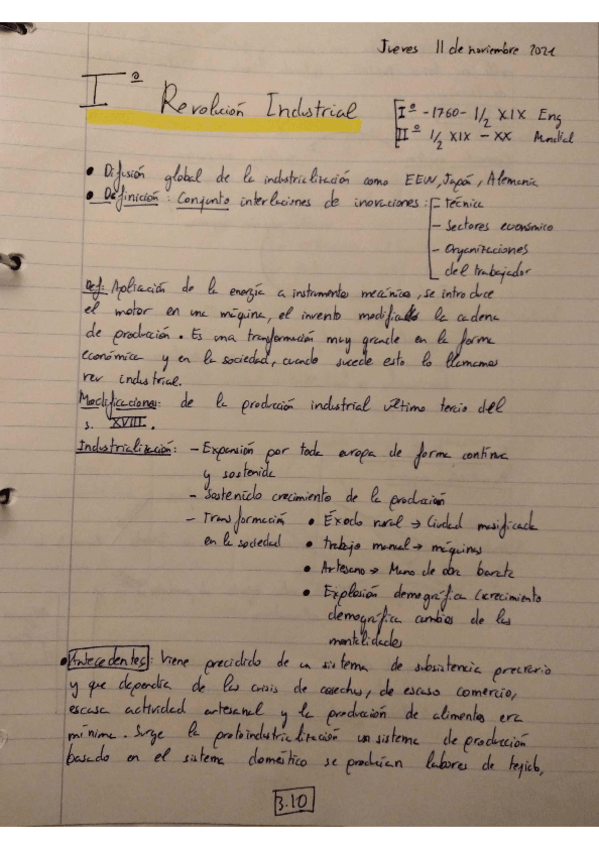 Jueves 11 de noviembre 2021
Iº Revolución Industrial
Iº -1760- 1/2 XIX Eng
IIº 1/2 XIX - XX Mundial
• Difusión global de la industrialización como EEUU, Japón, Alemania
• Definición: Conjunto interlaciones de inovaciones: - técnica
- Sectores económico
- Organizaciones
del trabajador
Def: Aplicación de la energía a instrumentos mecánico, se introduce
el motor en una máquina, el invento modificado la cadena
de producción. Es una transformación muy grande en la forma
económica y en la sociedad, cuando sucede esto lo llamamos
rev industrial.
Modificaciones: de la producción industrial último tercio del
s. XVIII.
Industrialización: - Expansión por toda europa de forma continua
y sostenida
- Sostenido crecimiento de la producción
- Transformación • Éxodo rural → Ciudad masificada
en la sociedad • trabajo manual → máquinas
• Artesano → Mano de obra barata
• Explosión demográfica (crecimiento
demográfica cambios de las
mentalidades
• Antecedentes: Viene precidido de un sistema de subsistencia precario
y que dependía de las crisis de cosechas, de escaso comercio,
escasa actividad artesanal y la producción de alimentos era
mínima. Surge la protoindustrialización un sistema de producción
basado en el sistema doméstico se producían labores de tejido,
3.10